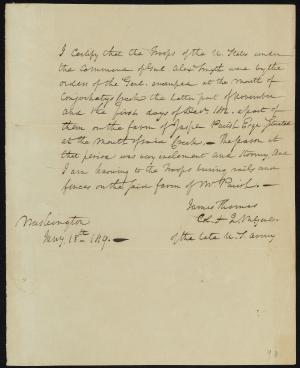 I Certify that the Troops of the U States under
the Command of Genl Alexr Smyth were by the
orders of the Genl. encamped at the mouth of
Conjorhatys Creek the latter part of November
and the first days of Decr. 1812. a part of
them on the farm of Jasper Parish Esqr situated
at the mouth of said Creek. — The season at
that period was very inclement and stormy and
I am knowing to the Troops burning rails and
fences on the said farm of Mr Parish. —
James Thomas
Col. & Q M Genl.
of the late U. S. army
Washington
Jany. 18th 1819. —